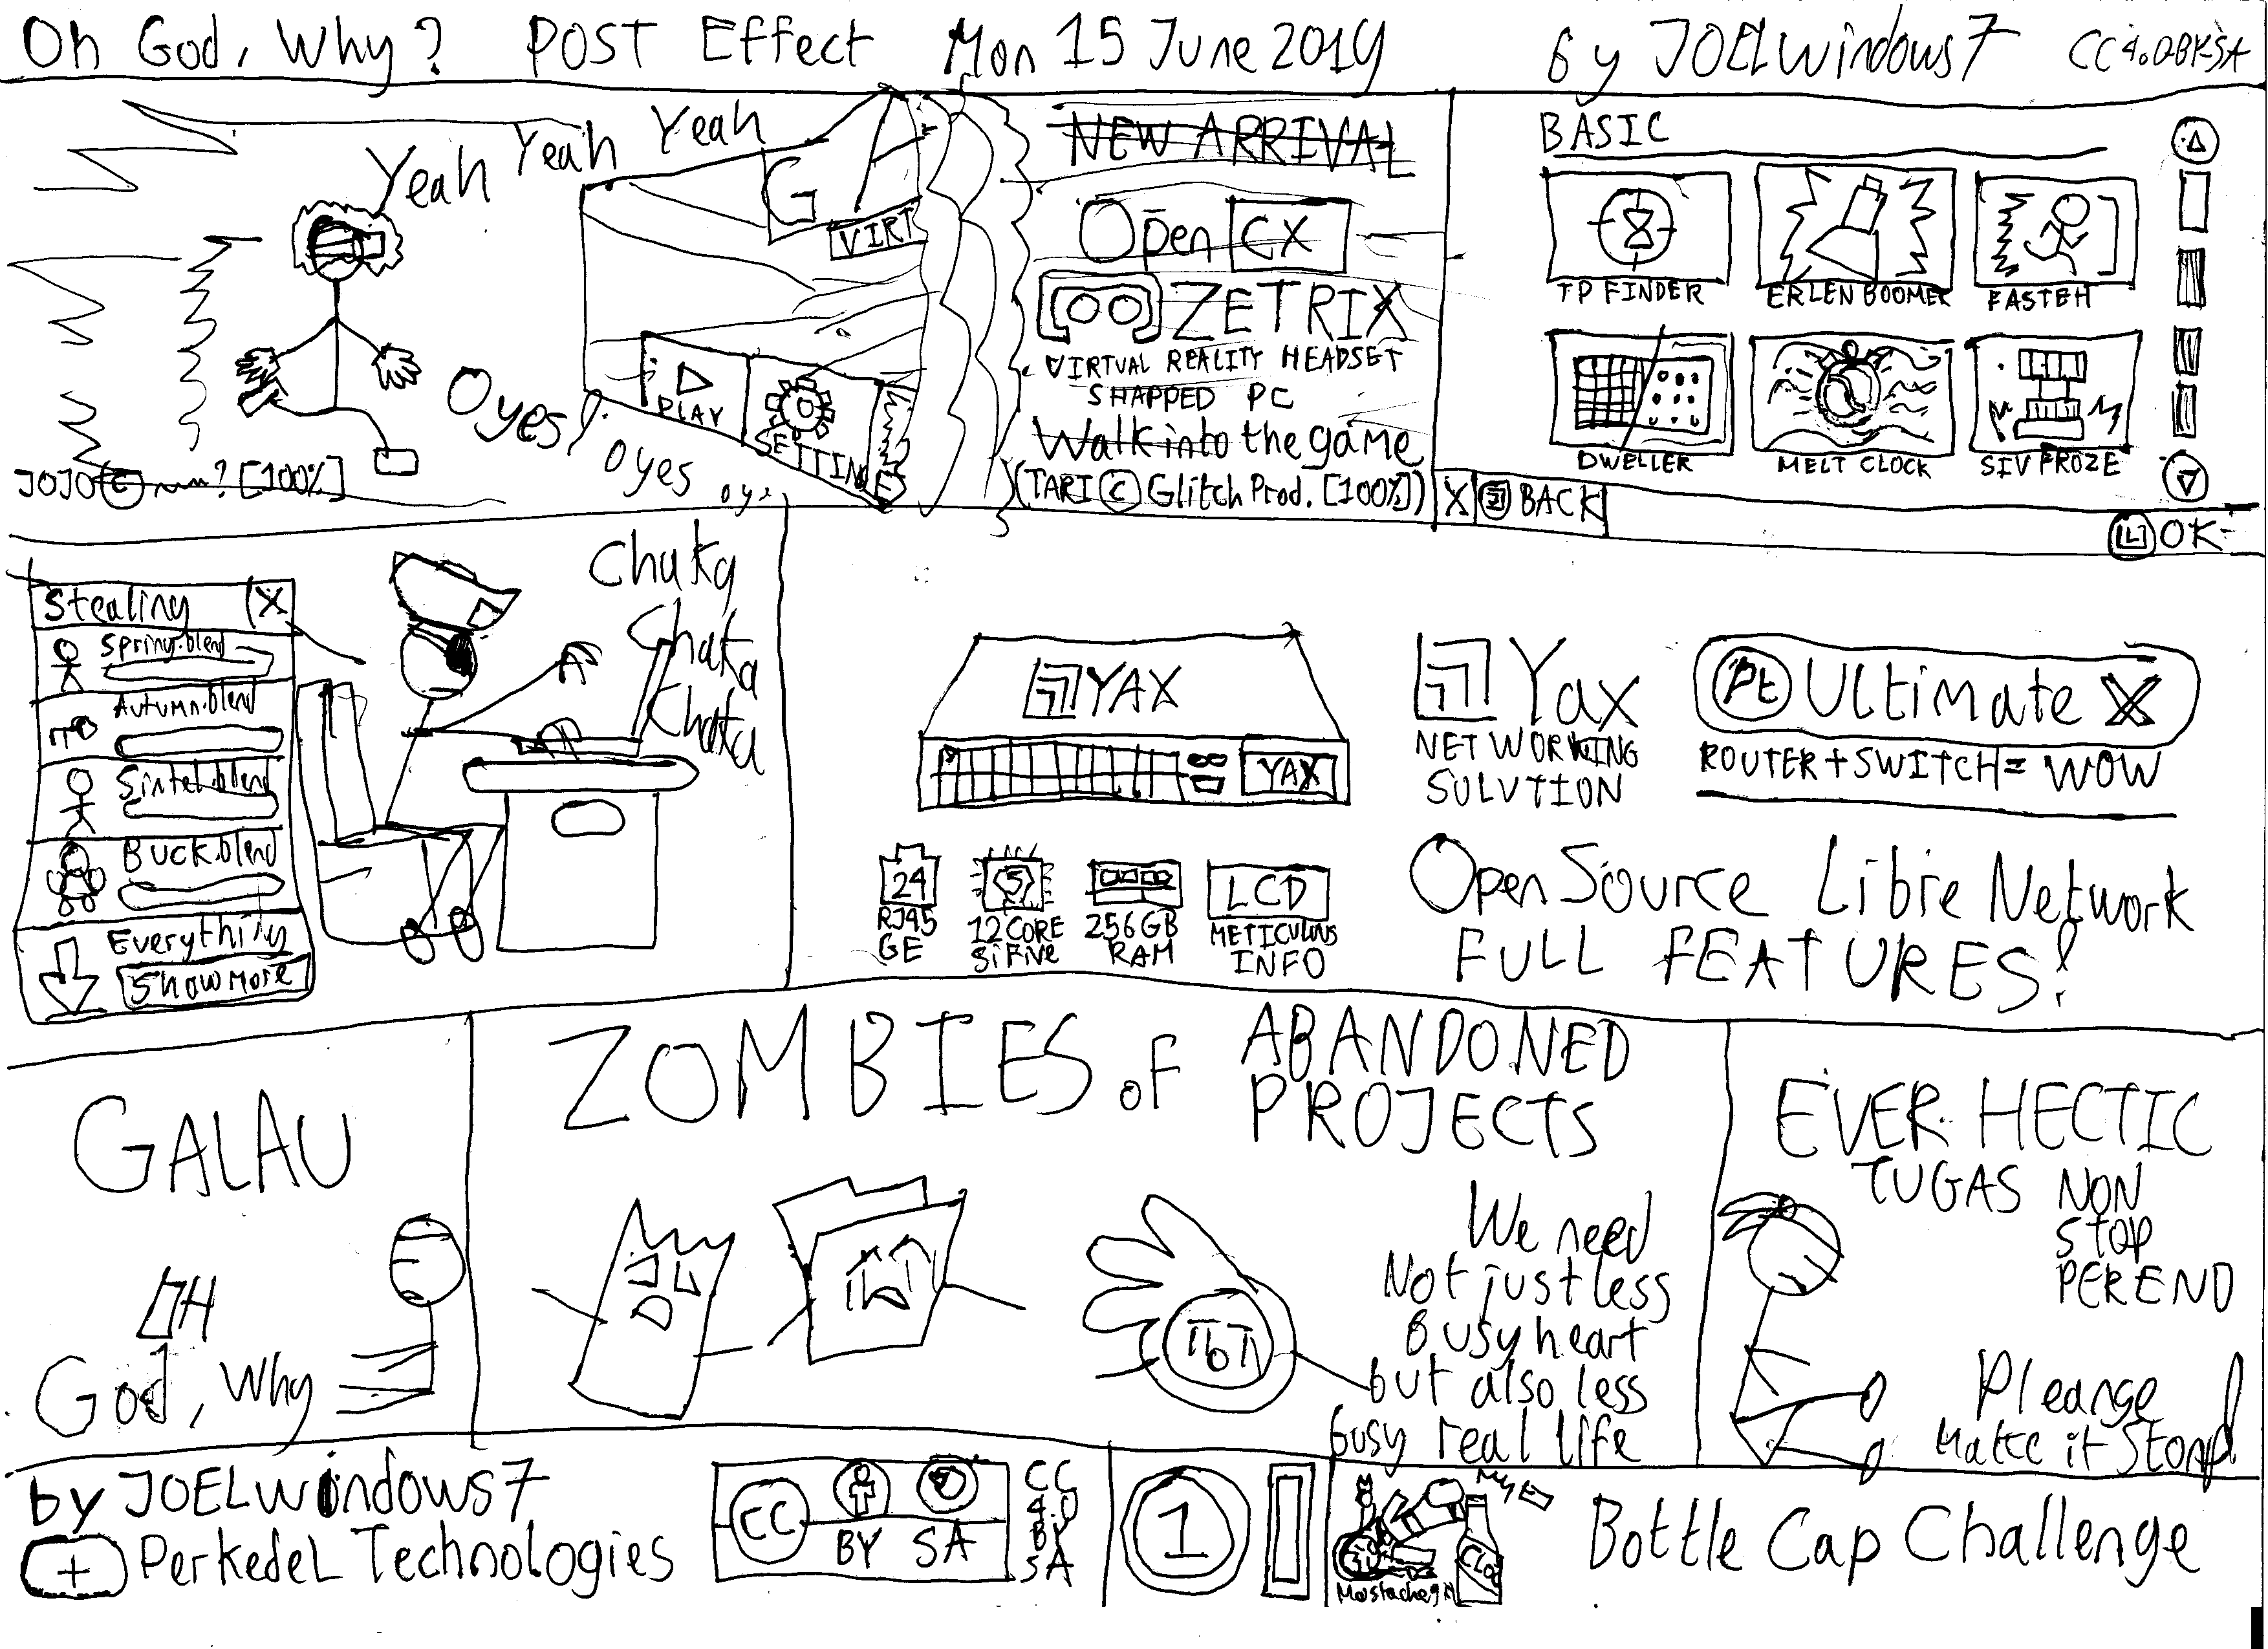 Oh God, Why? POST Effect Mon 15 June 2019 by JOELwindows7 CC 4.0 BY-SA
Yeah Yeah Yeah
G A
VIRT
PLAY
SETTING
O yes!
o yes
JOJO © ? [100%]
NEW ARRIVAL
Open CX
ZETRIX
VIRTUAL REALITY HEADSET
SHAPPED PC
Walk into the game
(TARI © Glitch Prod. [100%])
BASIC
TP FINDER
ERLEN BOOMER
FASTEH
DWELLER
MELT CLOCK
SIV FROZE
X BACK
OK
Stealing X
Spring.blend
Autumn.blend
Sintel.blend
Buck.blend
Everything
Show more
Chaka
Chaka
Chaka
YAX
YAX
Yax
NETWORKING
SOLUTION
Pt Ultimate X
ROUTER + SWITCH = WOW
24
RJ45
GE
5
12 CORE
SiFive
256 GB
RAM
LCD
METICULOUS
INFO
OpenSource Libre Network
FULL FEATURES!
GALAU
OH
God, Why
ZOMBIES OF ABANDONED
PROJECTS
We need
Not just less
busy heart
but also less
busy real life
EVER HECTIC
TUGAS NON
STOP
PEREND
Pleange
Matte it Stond
by JOELwindows7
+ Perkedel Technologies
CC
BY SA
CC
4.0
BY
SA
1
Bottle Cap Challenge